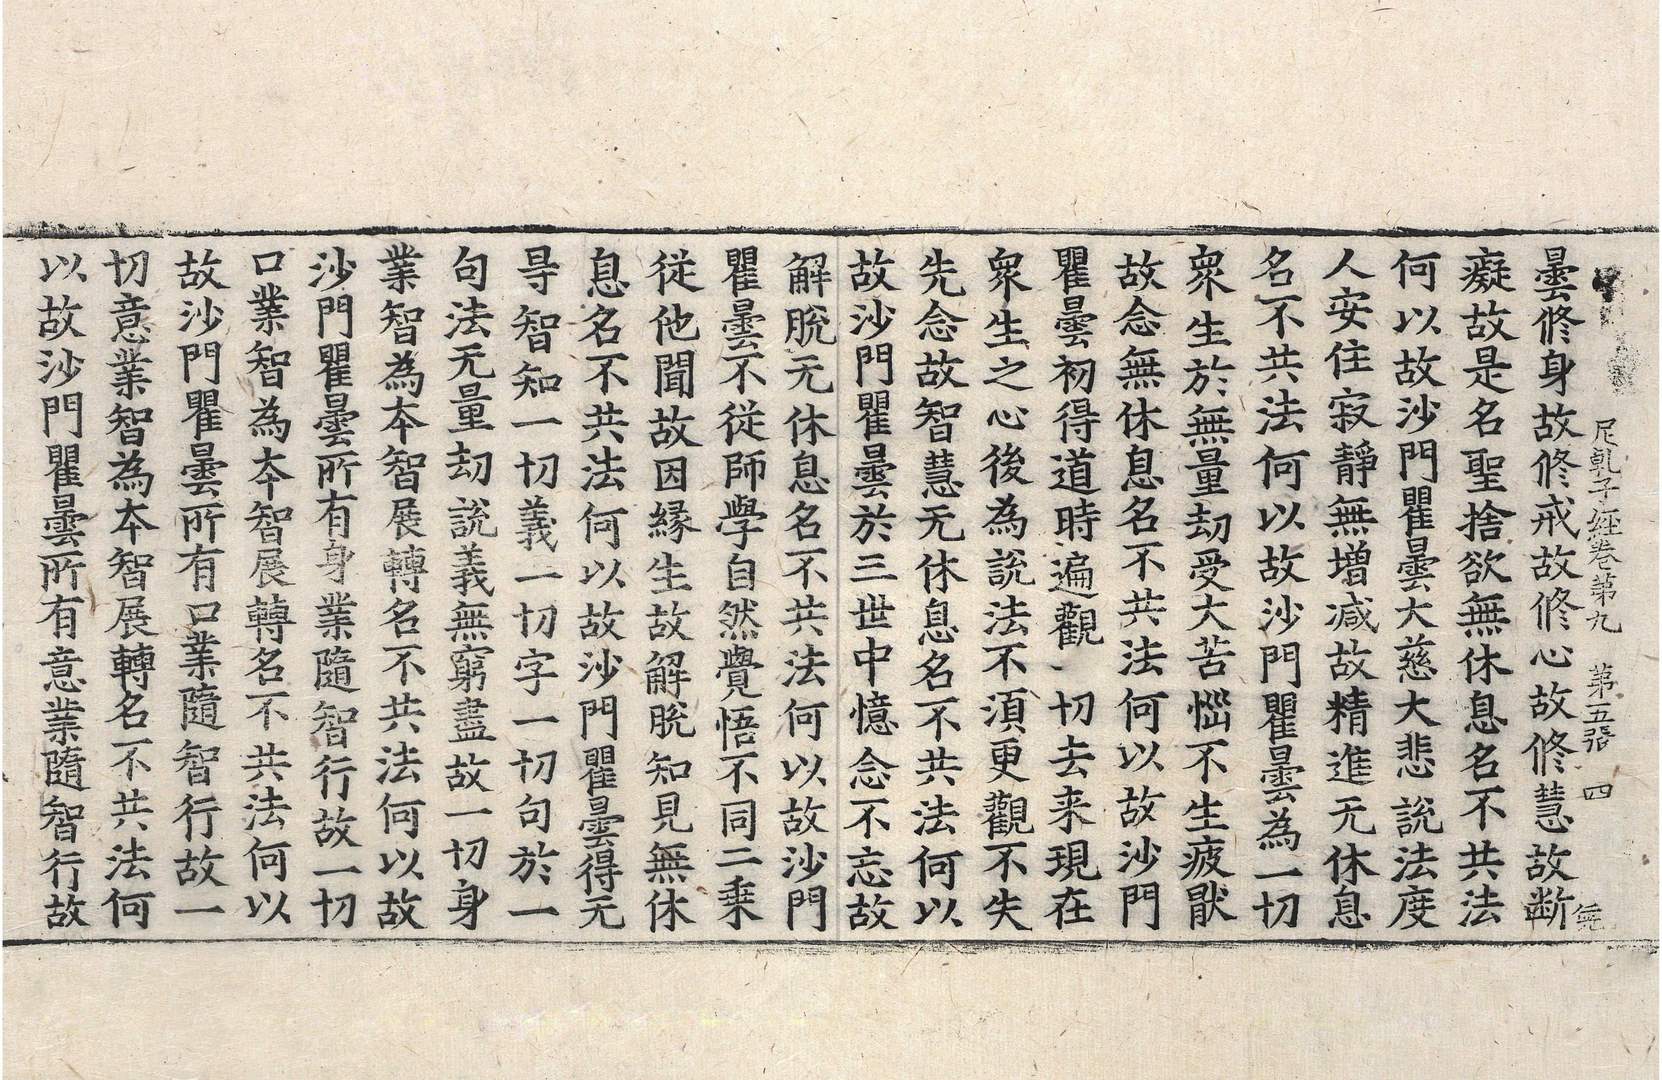 尼乹子經卷第九　第五張　四
曇修身故修戒故修心故修慧故断
癡故是名聖捨欲無休息名不共法
何以故沙門瞿曇大慈大悲說法度
人安住寂靜無增减故精進无休息
名不共法何以故沙門瞿曇為一切
衆生於無量劫受大苦惱不生疲猒
故念無休息名不共法何以故沙門
瞿曇初得道時遍觀一切去来現在
衆生之心後為說法不湏更觀不失
先念故智慧无休息名不共法何以
故沙門瞿曇於三世中憶念不忘故
解脫无休息名不共法何以故沙門
瞿曇不從師學自然覺悟不同二乗
從他聞故因緣生故解脫知見無休
息名不共法何以故沙門瞿曇得无
㝵智知一切義一切字一切句於一
句法无量劫說義無窮盡故一切身
業智為本智展轉名不共法何以故
沙門瞿曇所有身業隨智行故一切
口業智為本智展轉名不共法何以
故沙門瞿曇所有口業隨智行故一
切意業智為本智展轉名不共法何
以故沙門瞿曇所有意業隨智行故